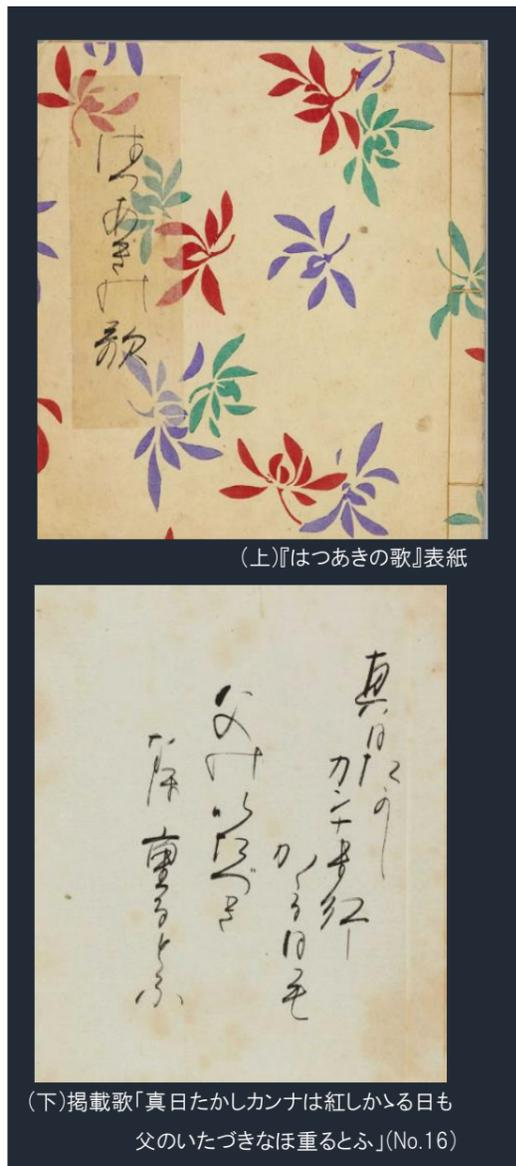 はつあきの歌
(上)『はつあきの歌』表紙
真日たかし
カンナは紅し
かゝる日も
父のいたづき
なほ重るとふ
(下)掲載歌「真日たかしカンナは紅しかゝる日も
父のいたづきなほ重るとふ」(No.16)